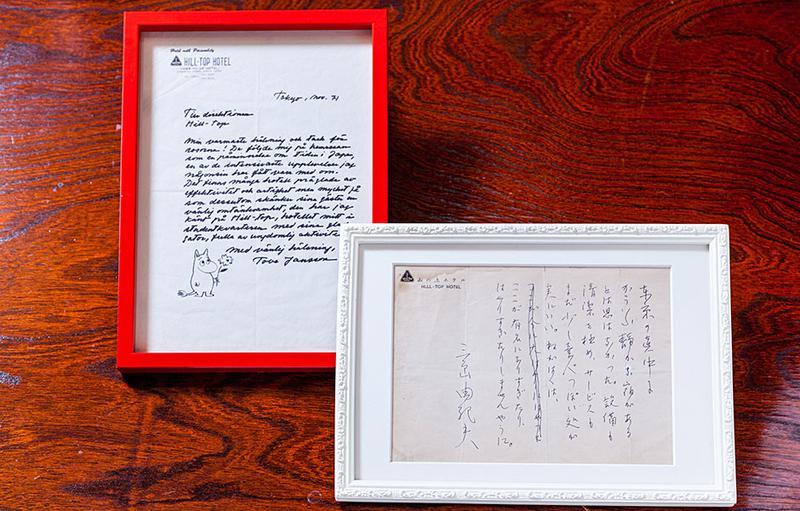 Hotel with Personality
HILL-TOP HOTEL
Tokyo, nov. 71
Till direktionen
Hill-Top
Min varmaste hälsning och tack för
rosorna! De följde mig på hemresan
som en påminnelse om tiden i Japan,
en av de intensivaste upplevelser jag
någonsin har fått vara med om.
Det finns många hotell präglade av
effektivitet och artighet men mycket få
som dessutom skänker sina gäster en
vänlig omtänksamhet, den har jag
känt på Hill-Top, hotellet mitt i
studentkvarteren med sina gla
gator, fulla av ungdomlig aktivitet
Med vänlig hälsning,
Tove Jansson
山の上ホテル
HILL-TOP HOTEL
東京の真中に
かういふ静かな宿がある
とは思はなかつた。設備も
清潔を極め、サービスも
まだ少し素人つぽい処が
実にいい。ねがはくは、
ここが有名になりすぎたり
はやりすぎたりしませんやうに。
三島由紀夫